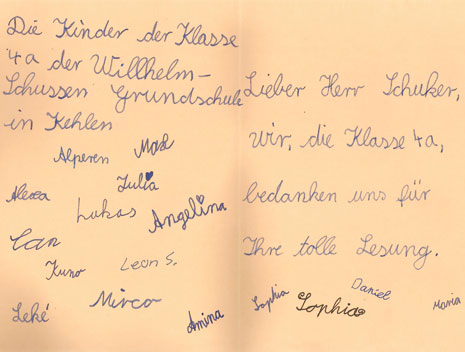 Die Kinder der Klasse
4a der Willhelm-
Schussen Grundschule
in Kehlen
Alperen
Max
Julia
Alexa
Lukas
Angelina
Can
Kuno
Leon S.
Mirco
Leké
Amina
Lieber Herr Schuker,
wir, die Klasse 4a,
bedanken uns für
Ihre tolle Lesung.
Sophia
Sophia
Daniel
Maria